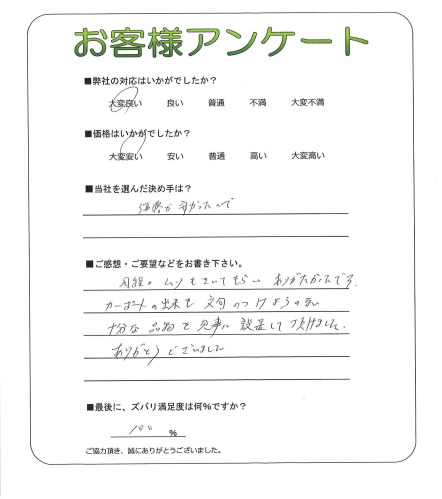 お客様アンケート
■弊社の対応はいかがでしたか?
大変良い 良い 普通 不満 大変不満
■価格はいかがでしたか?
大変安い 安い 普通 高い 大変高い
■当社を選んだ決め手は?
価格が安かったので
■ご感想・ご要望などをお書き下さい。
日程の ムリもきいてもらい ありがたかったです。
カーポートの出来も 文句のつけようのない
十分な 品物を 見事に 設置して 頂けました。
ありがとうございました
■最後に、ズバリ満足度は何%ですか?
100 %
ご協力頂き、誠にありがとうございました。